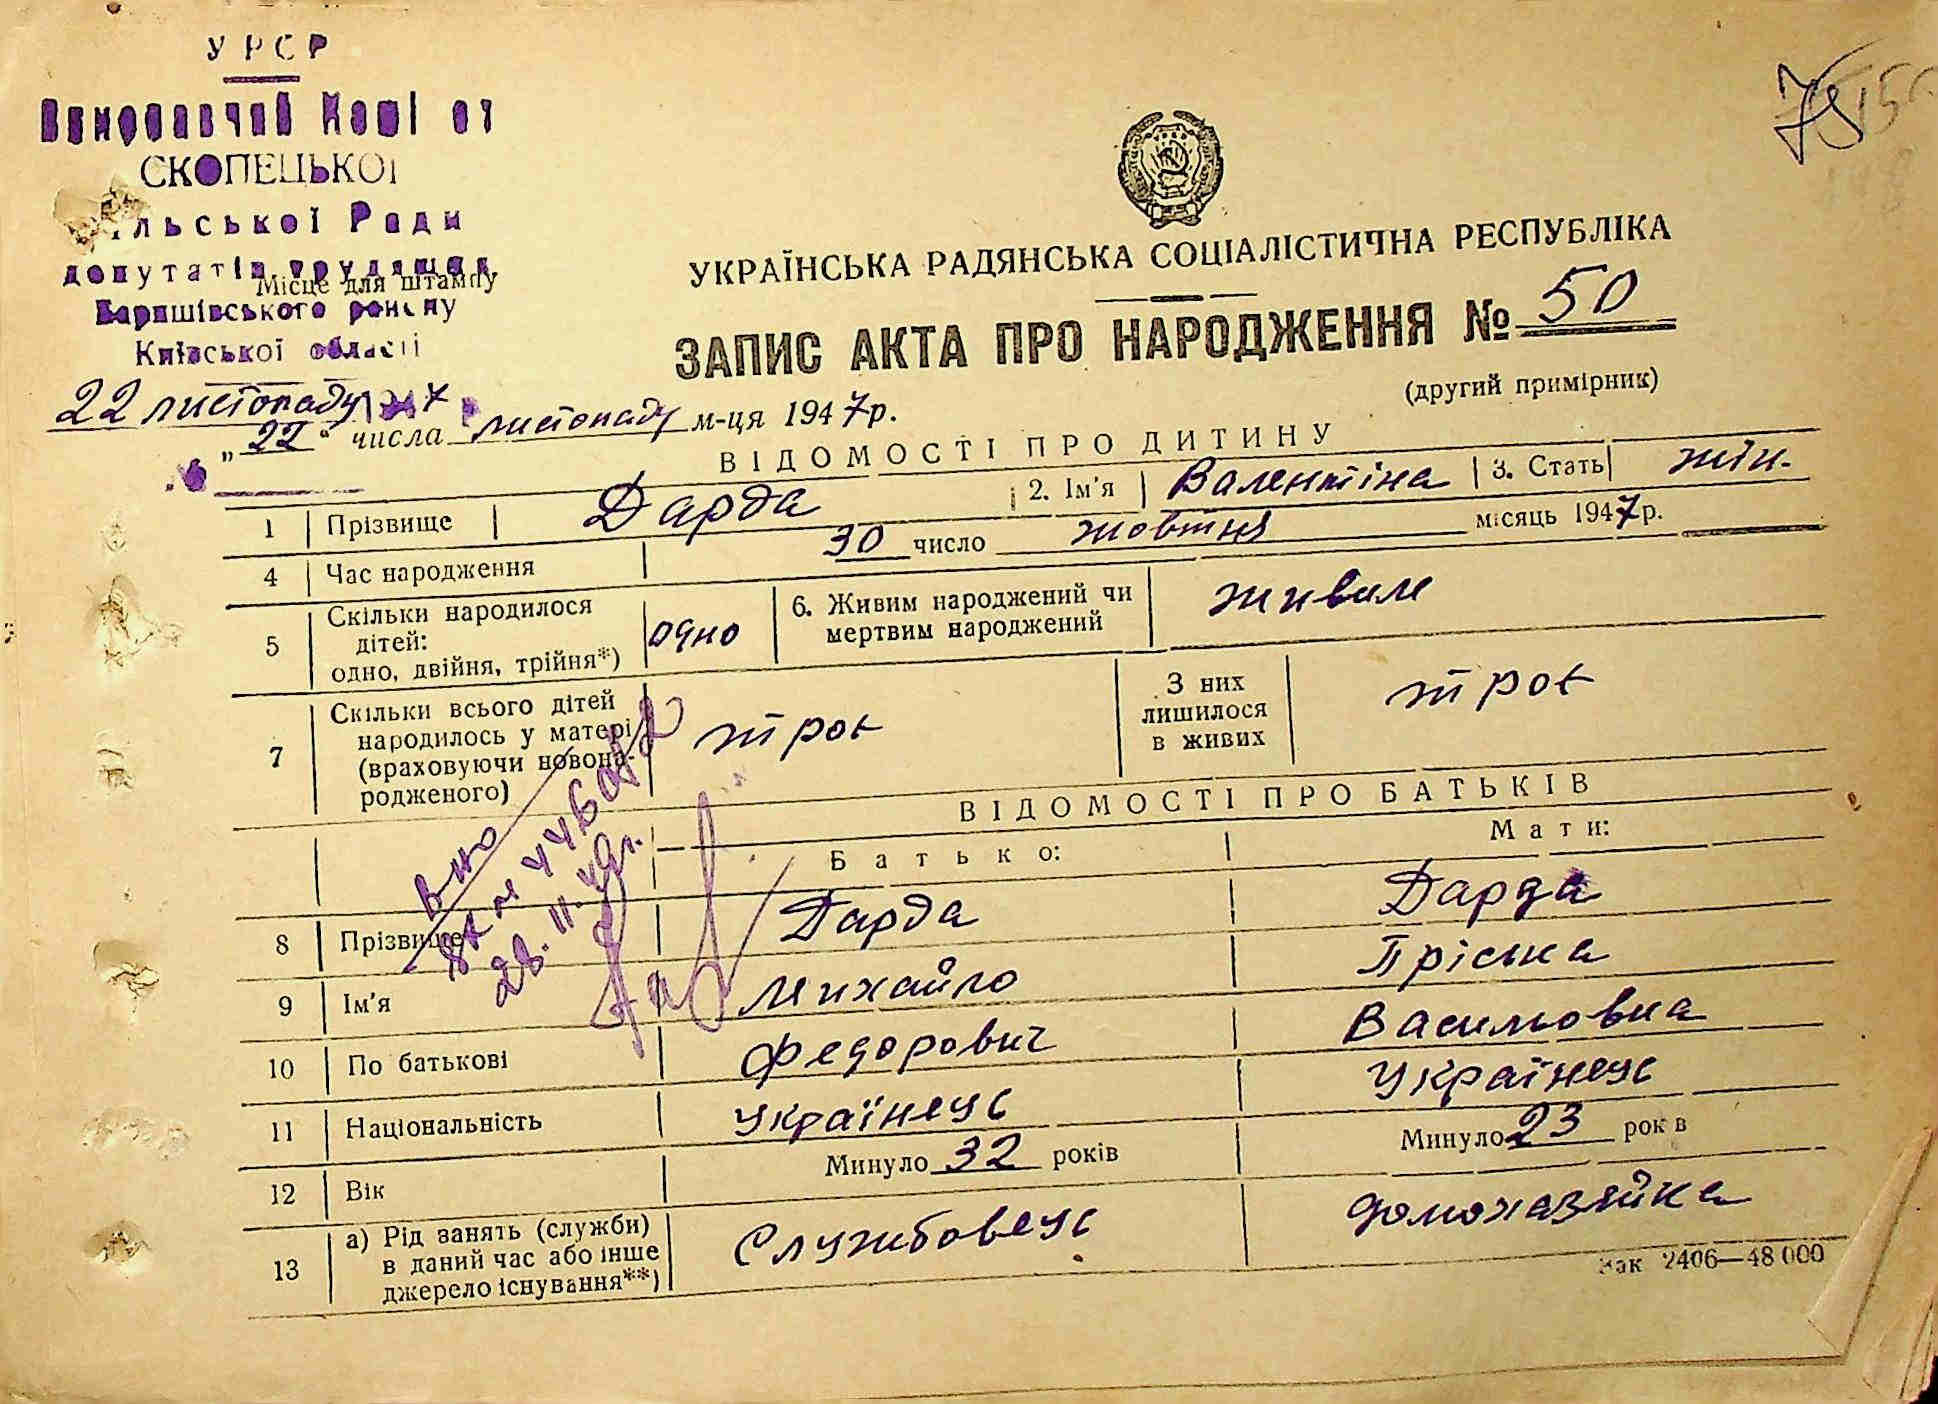 УРСР
Виконавчий Комі от
СКОПЕЦЬКОІ
ільської Ради
депутатів трудящих
Місце для штампу
Баришівського району
Київської області
22 листопаду 1947
УКРАЇНСЬКА РАДЯНСЬКА СОЦІАЛІСТИЧНА РЕСПУБЛІКА
ЗАПИС АКТА ПРО НАРОДЖЕННЯ № 50
(другий примірник)
„22“ числа листопаду м-ця 1947р.
ВІДОМОСТІ ПРО ДИТИНУ
1 Прізвище Дарда 2. Ім'я Валентіна 3. Стать жін.
4 Час народження 30 число жовтня місяць 1947р.
5 Скільки народилося дітей: одно, двійня, трійня*) одно 6. Живим народжений чи мертвим народжений живим
7 Скільки всього дітей народилось у матері (враховуючи новонародженого) троє З них лишилося в живих троє
28.11.49г.
ВІДОМОСТІ ПРО БАТЬКІВ
Батько: Мати:
8 Прізвище Дарда Дарда
9 Ім'я Михайло Пріська
10 По батькові Федорович Васильовна
11 Національність Українець Українець
12 Вік Минуло 32 років Минуло 23 рок в
13 а) Рід занять (служби) в даний час або інше джерело існування**) Службовець домохазяйка
Зак 2406—48 000